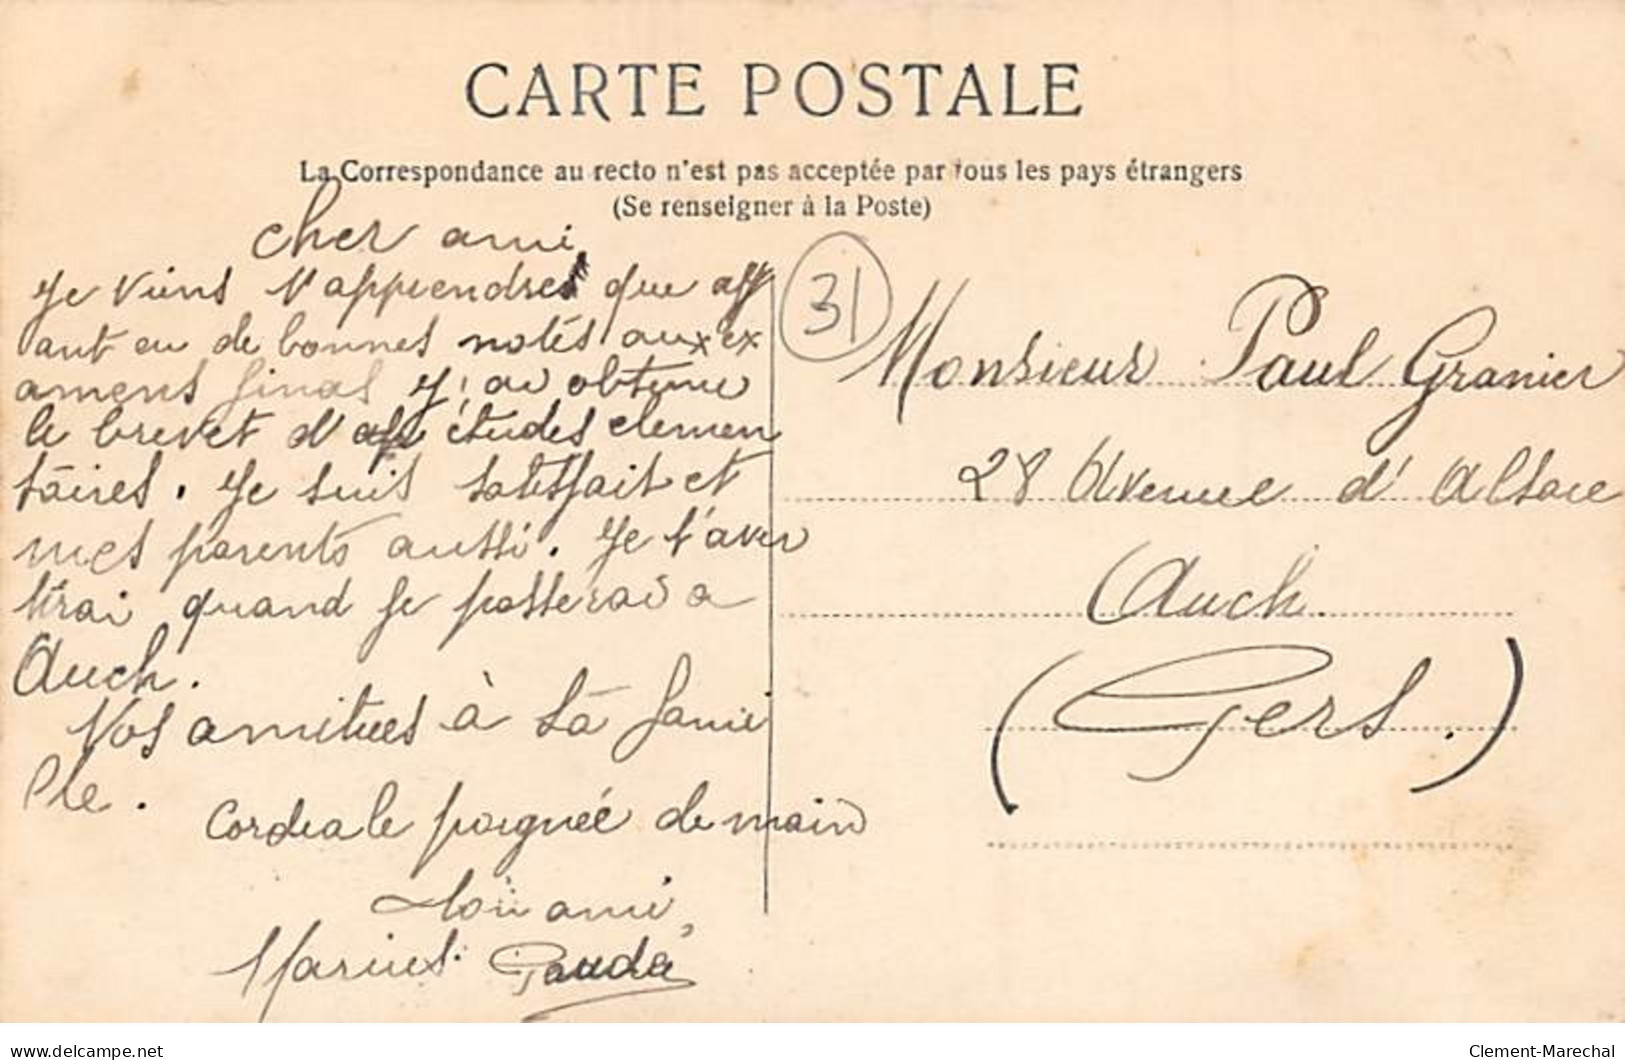 CARTE POSTALE
La Correspondance au recto n'est pas acceptée par tous les pays étrangers
(Se renseigner à la Poste)
Cher ami,
Je viens t'apprendre que ay
ant eu de bonnes notes aux ex
amens final j'ai obtenu
le brevet d' études elemen
taires. Je suis satisfait et
mes parents aussi. Je t'aver
tirai quand je passerai a
Auch.
Nos amitiées à ta fami
lle.
Cordiale poignée de main
Ton ami,
Marius
31
Monsieur Paul Granier
28 Avenue d'Alsace
Auch.
(Gers.)
delcampe.net
Clement-Marechal